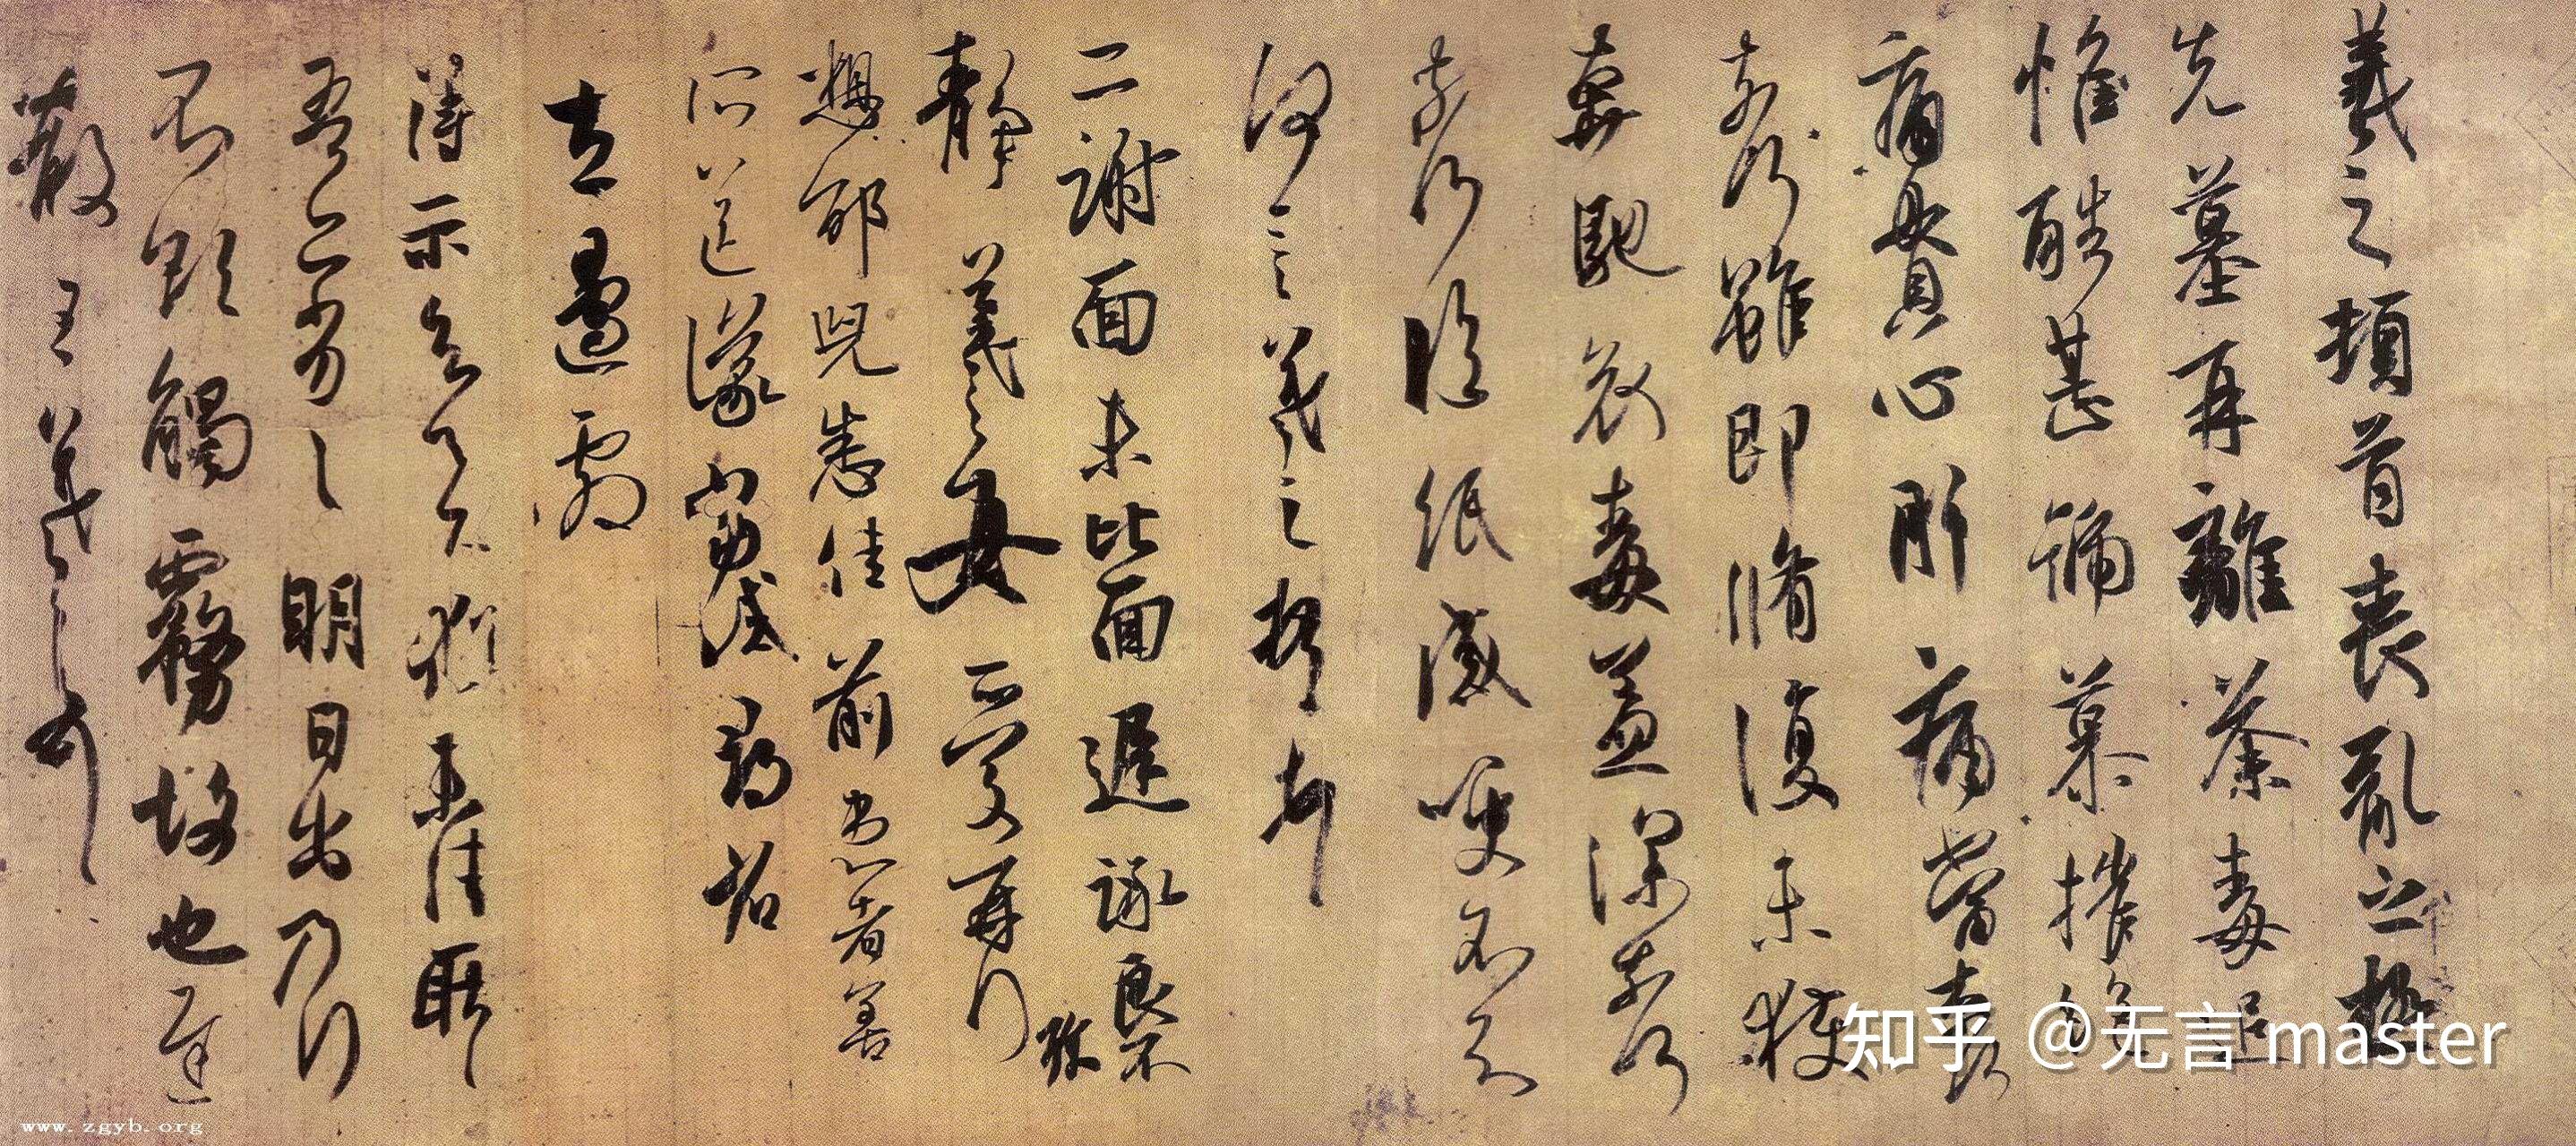 羲之頓首喪亂之極
先墓再離荼毒追
惟酷甚號慕摧絶
痛貫心肝痛當奈
何奈何雖即脩復未獲
奔馳哀毒益深奈何
奈何臨紙感哽不知
何言羲之頓首頓首
二謝面未比面遲詠良不
靜羲之女愛再拜
想邵兒悉佳前患者善
所送議當試尋省
左邊劇
得示知足下猶未佳耿耿
吾亦劣劣明日出乃行
不欲觸霧故也遲
散王羲之頓首
知乎 @无言master
www.zgyb.org